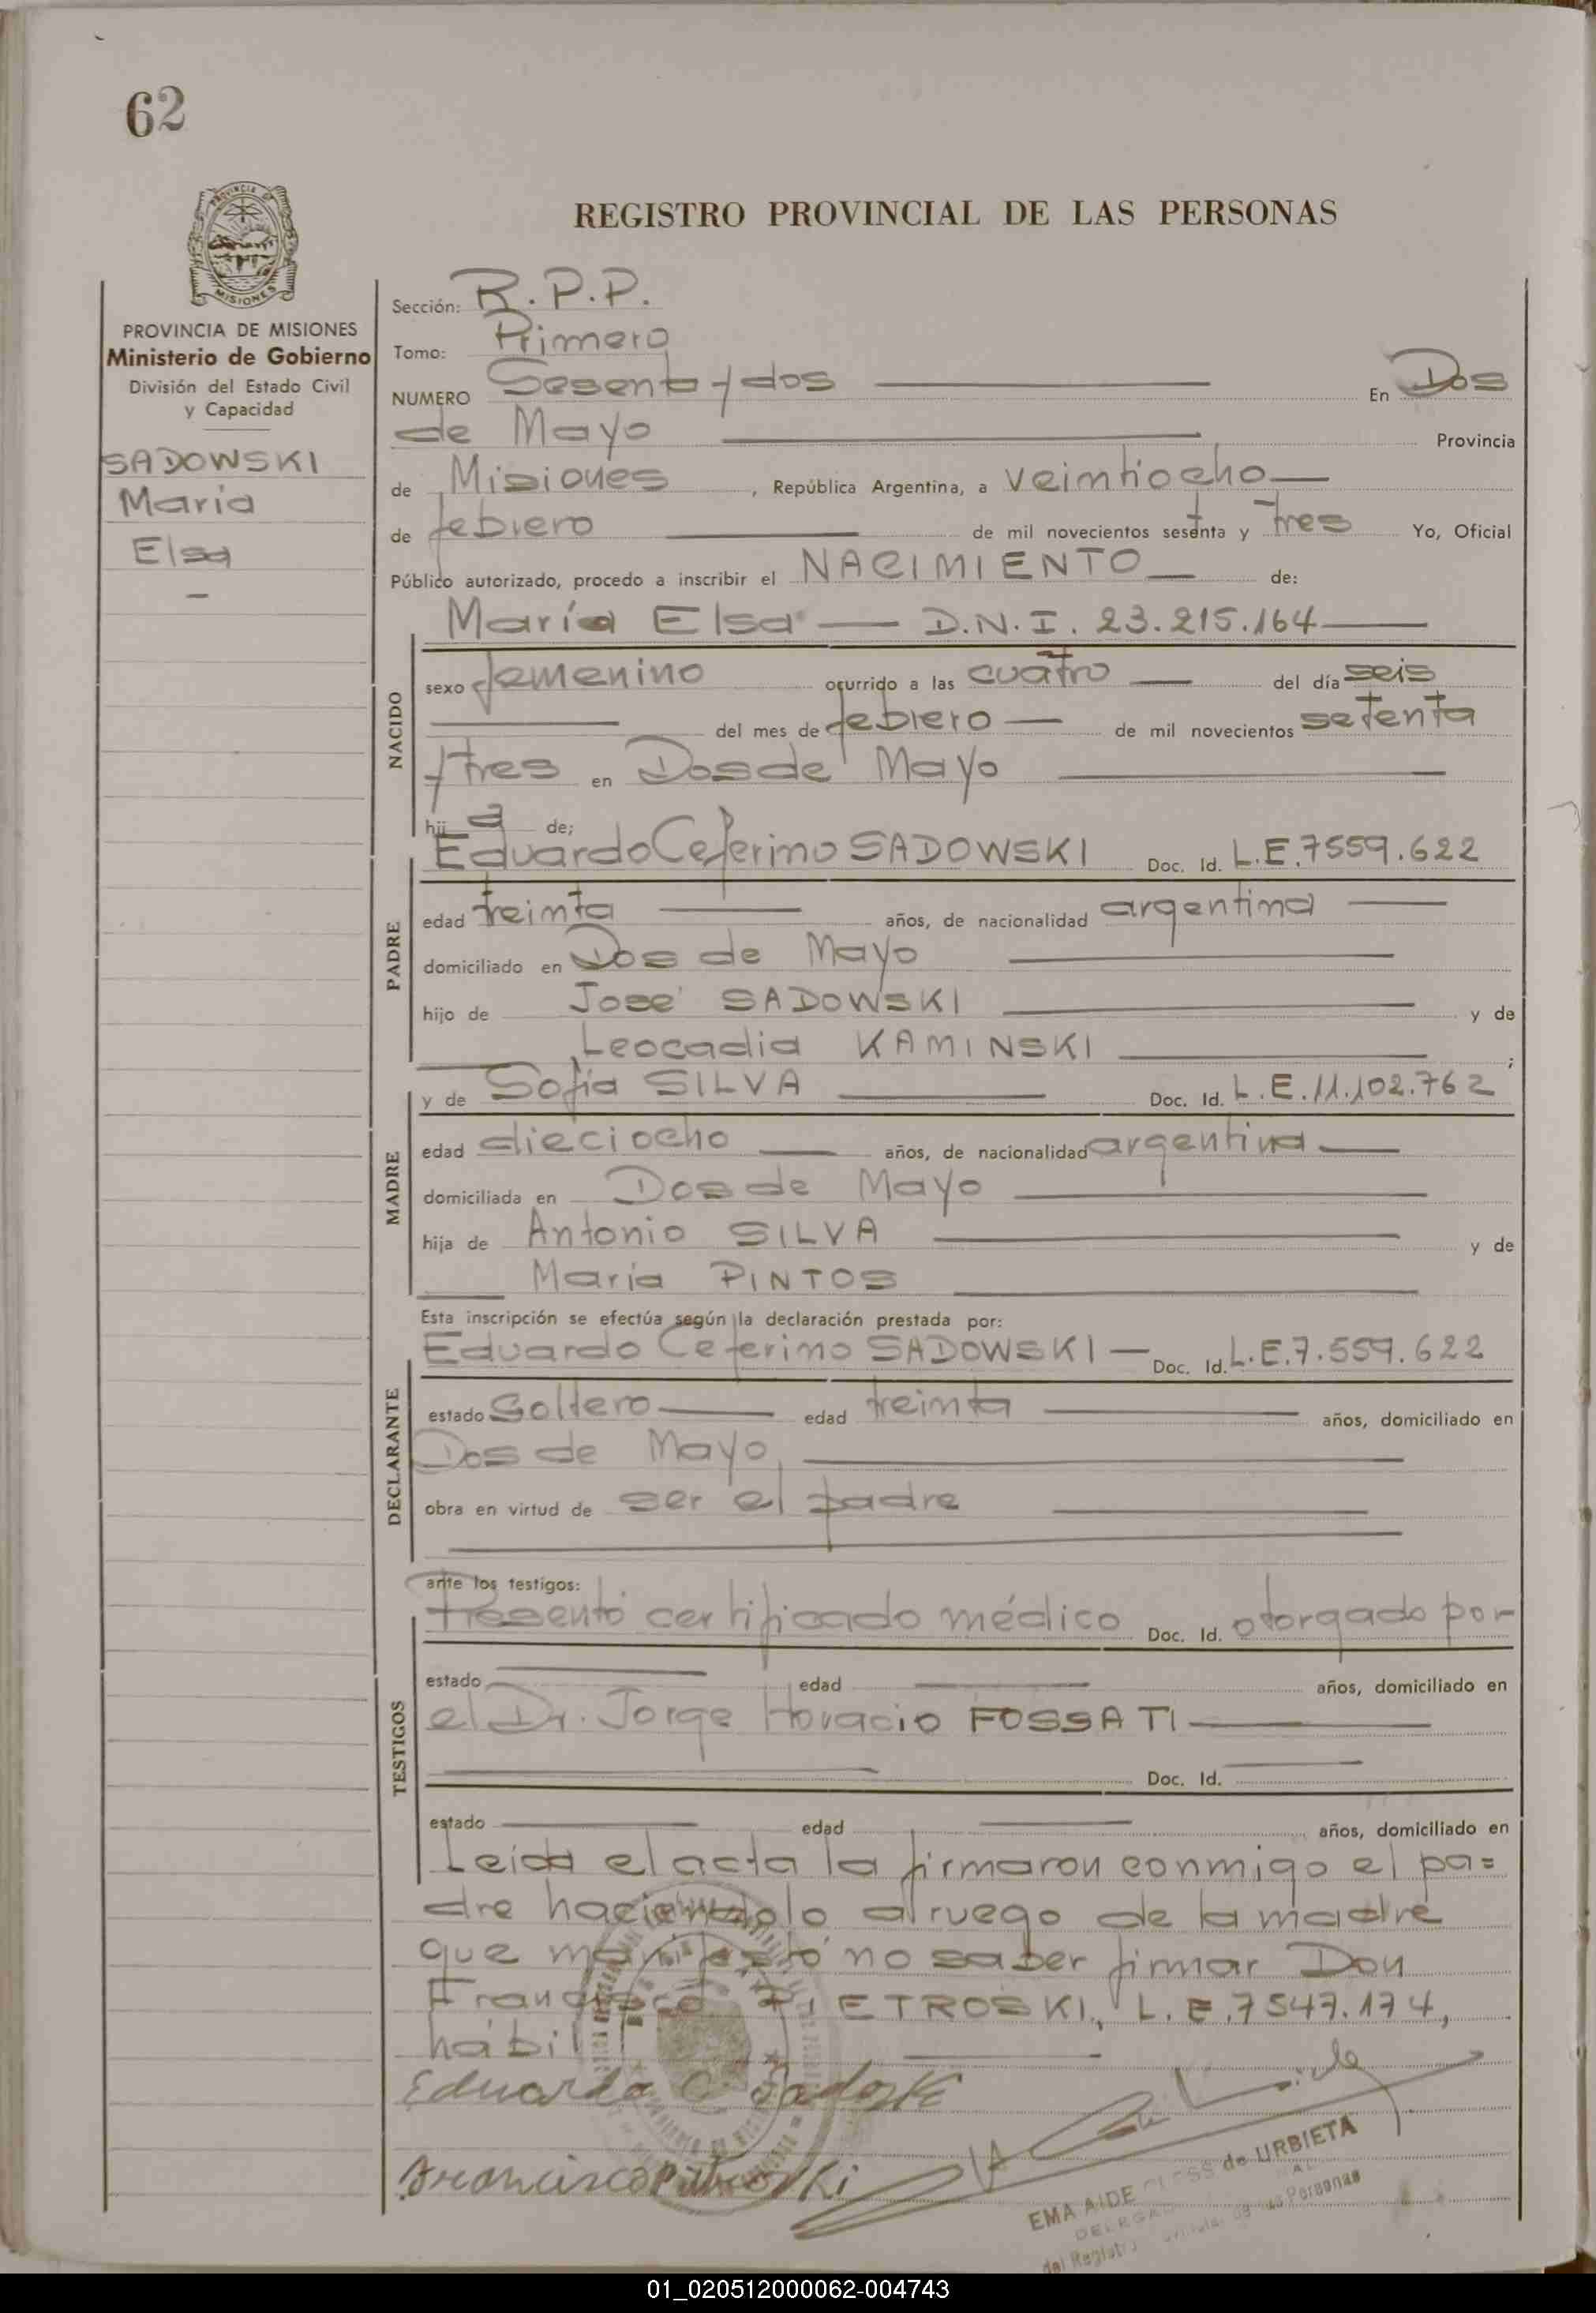 62
PROVINCIA DE
MISIONES
REGISTRO PROVINCIAL DE LAS PERSONAS
PROVINCIA DE MISIONES
Ministerio de Gobierno
División del Estado Civil
y Capacidad
SADOWSKI
María
Elsa
Sección: R.P.P.
Tomo: Primero
NUMERO Sesenta y dos En Dos
de Mayo Provincia
de Misiones, República Argentina, a veintiocho
de febrero de mil novecientos sesenta y tres Yo, Oficial
Público autorizado, procedo a inscribir el NACIMIENTO de:
María Elsa — D.N.I. 23.215.164
NACIDO
sexo femenino ocurrido a las cuatro del día seis
del mes de febrero de mil novecientos setenta
y tres en Dos de Mayo
hij a de;
Eduardo Ceferino SADOWSKI Doc. Id. L.E.7559.622
PADRE
edad treinta años, de nacionalidad argentina
domiciliado en Dos de Mayo
hijo de José SADOWSKI y de
Leocadia KAMINSKI ;
y de Sofía SILVA Doc. Id. L.E.11.102.762
MADRE
edad dieciocho años, de nacionalidad argentina
domiciliada en Dos de Mayo
hija de Antonio SILVA y de
María PINTOS
Esta inscripción se efectúa según la declaración prestada por:
Eduardo Ceferino SADOWSKI — Doc. Id. L.E.7.559.622
DECLARANTE
estado Soltero edad treinta años, domiciliado en
Dos de Mayo
obra en virtud de ser el padre
ante los testigos:
Presentó certificado médico Doc. Id. otorgado por
TESTIGOS
estado edad años, domiciliado en
el Dr. Jorge Horacio FOSSATI
Doc. Id.
estado edad años, domiciliado en
Leída el acta la firmaron conmigo el pa=
dre haciendolo a ruego de la madre
que manifestó no saber firmar Don
Francisco PIETROSKI, L.E.7547.174,
hábil
Eduardo C
Francisco Pietroski
EMA AIDE de URBIETA
del Registro Personas
01_020512000062-004743